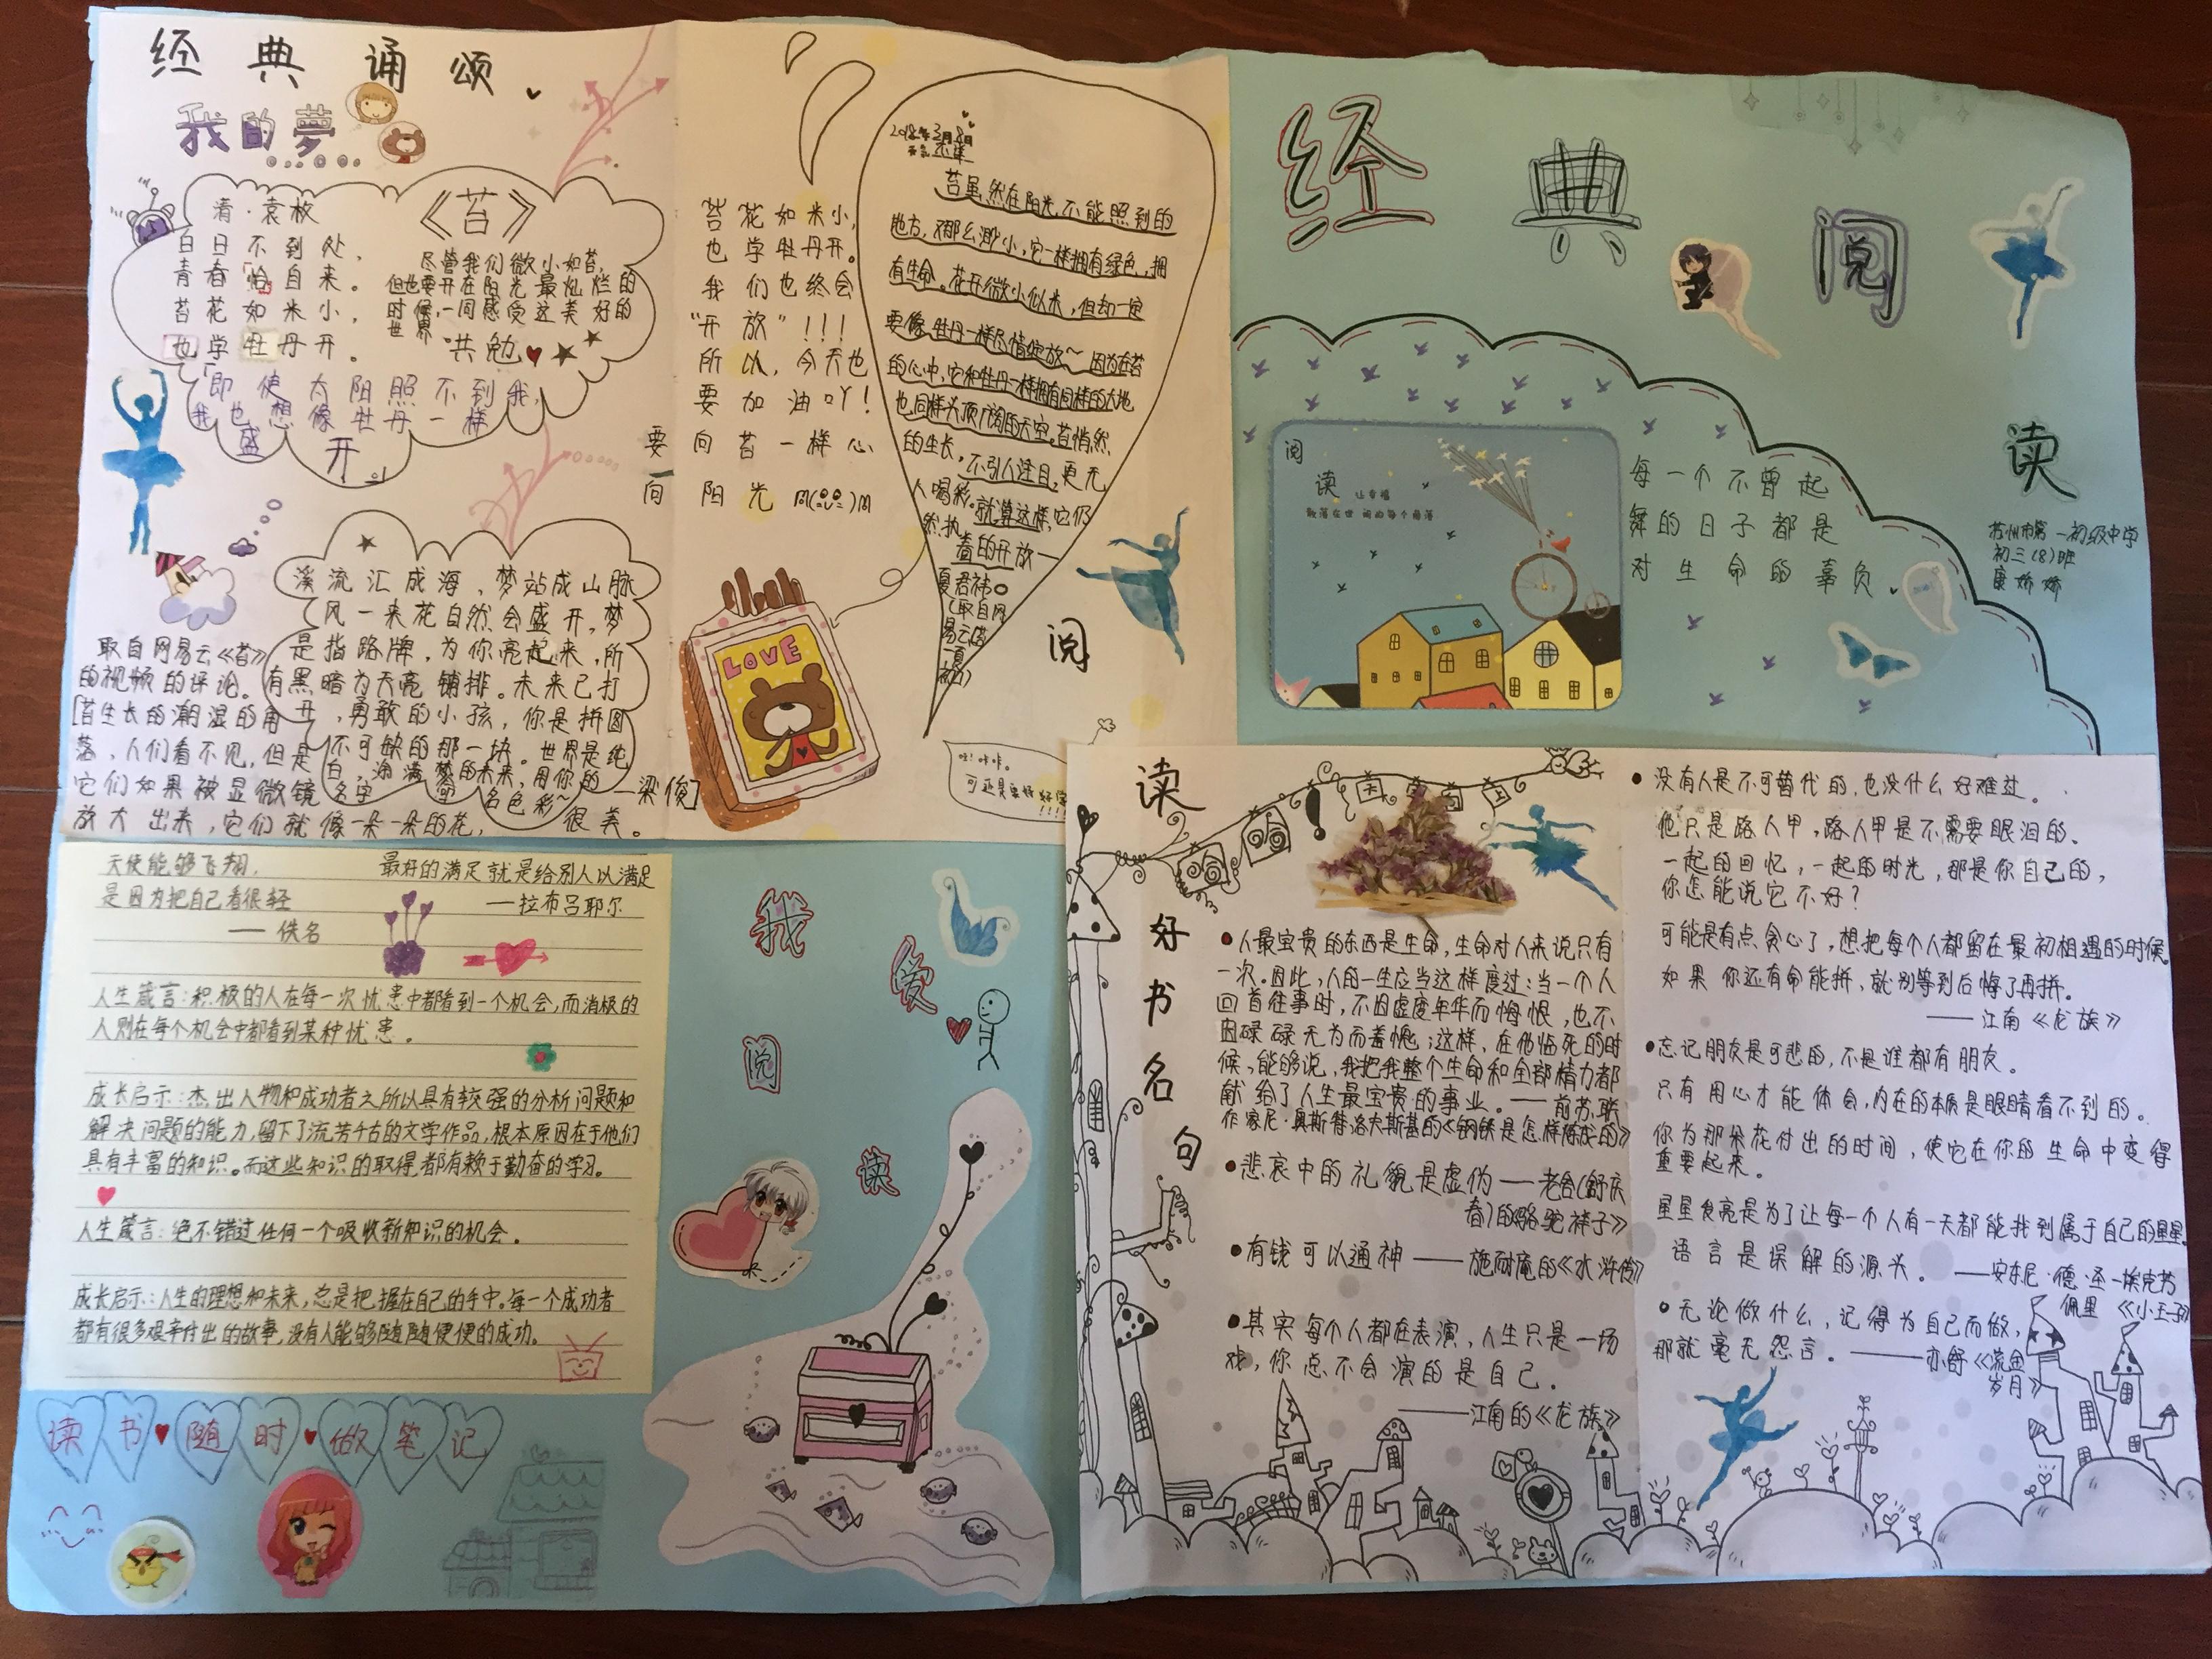 经典诵颂
我的夢
《苔》
清·袁枚
白日不到处，
青春恰自来。
苔花如米小，
也学牡丹开。
尽管我们微小如苔，
但也要开在阳光最灿烂的
时候，一同感受这美好的
世界。
共勉
「即使太阳照不到我，
我也想像牡丹一样
盛开。」
溪流汇成海，梦站成山脉
风一来花自然会盛开，梦
是指路牌，为你亮起来，所
有黑暗为天亮铺排。未来已打
开，勇敢的小孩，你是拼图
不可缺的那一块。世界是纯
白，涂满梦的未来，用你的
名字 名色彩~
——梁俊]
取自网易云《苔》
的视频的评论。
[苔生长的潮湿的角
落，人们看不见，但是
它们如果被显微镜
放大出来，它们就像一朵一朵的花，很美。
苔花如米小，
也学牡丹开。
我们也终会
“开放”!!!
所以，今天也
要加油吖!
要向苔一样心
向阳光 m(
2018年3月8日
苔虽然在阳光不能照到的
地方，那么渺小，它一样拥有绿色，拥
有生命。花开微小似米，但却一定
要像牡丹一样尽情绽放~ 因为在苔
的心中，它和牡丹一样拥有同样的大地
也同样头顶广阔的天空。苔悄然
的生长，不引人注目，更无
人喝彩。就算这样，它仍
然执
着的开放—
夏君祎。
(取自网
易云
LOVE
可还是要好好
!!!!
经典阅读
阅
读 让幸福
散落在世间的每个角落
每一个不曾起
舞的日子都是
对生命的辜负。
苏州市第一初级中学
初三(8)班
康娇娇
阅
读
好
书
名
句
人最宝贵的东西是生命，生命对人来说只有
一次。因此，人的一生应当这样度过：当一个人
回首往事时，不因虚度年华而悔恨，也不
因碌碌无为而羞愧；这样，在他临死的时
候，能够说，我把我整个生命和全部精力都
献给了人生最宝贵的事业。——前苏联
作家尼·奥斯特洛夫斯基的《钢铁是怎样炼成的》
悲哀中的礼貌是虚伪——老舍(舒庆
春)的《骆驼祥子》
有钱可以通神——施耐庵的《水浒传》
其实每个人都在表演，人生只是一场
戏，你总不会演的是自己.
——江南的《龙族》
没有人是不可替代的，也没什么好难过。
他只是路人甲，路人甲是不需要眼泪的。
一起的回忆，一起的时光，那是你自己的，
你怎能说它不好?
可能是有点贪心了，想把每个人都留在最初相遇的时候。
如果你还有命能拼，就别等到后悔了再拼。
——江南《龙族》
忘记朋友是可悲的，不是谁都有朋友。
只有用心才能体会，内在的本质是眼睛看不到的。
你为那朵花付出的时间，使它在你的生命中变得
重要起来。
星星发亮是为了让每一个人有一天都能找到属于自己的星星。
语言是误解的源头。——安东尼·德·圣-埃克苏
佩里《小王子》
无论做什么，记得为自己而做，
那就毫无怨言。——亦舒《流金
岁月》
天使能够飞翔，
是因为把自己看很轻
——佚名
最好的满足就是给别人以满足
——拉布吕耶尔
人生箴言：积极的人在每一次忧患中都看到一个机会，而消极的
人则在每个机会中都看到某种忧患。
成长启示：杰出人物和成功者之所以具有较强的分析问题和
解决问题的能力，留下了流芳千古的文学作品，根本原因在于他们
具有丰富的知识。而这些知识的取得都有赖于勤奋的学习。
人生箴言：绝不错过任何一个吸收新知识的机会。
成长启示：人生的理想和未来，总是把握在自己的手中。每一个成功者
都有很多艰辛付出的故事，没有人能够随随便便的成功。
我爱阅读
读书♥随时♥做笔记